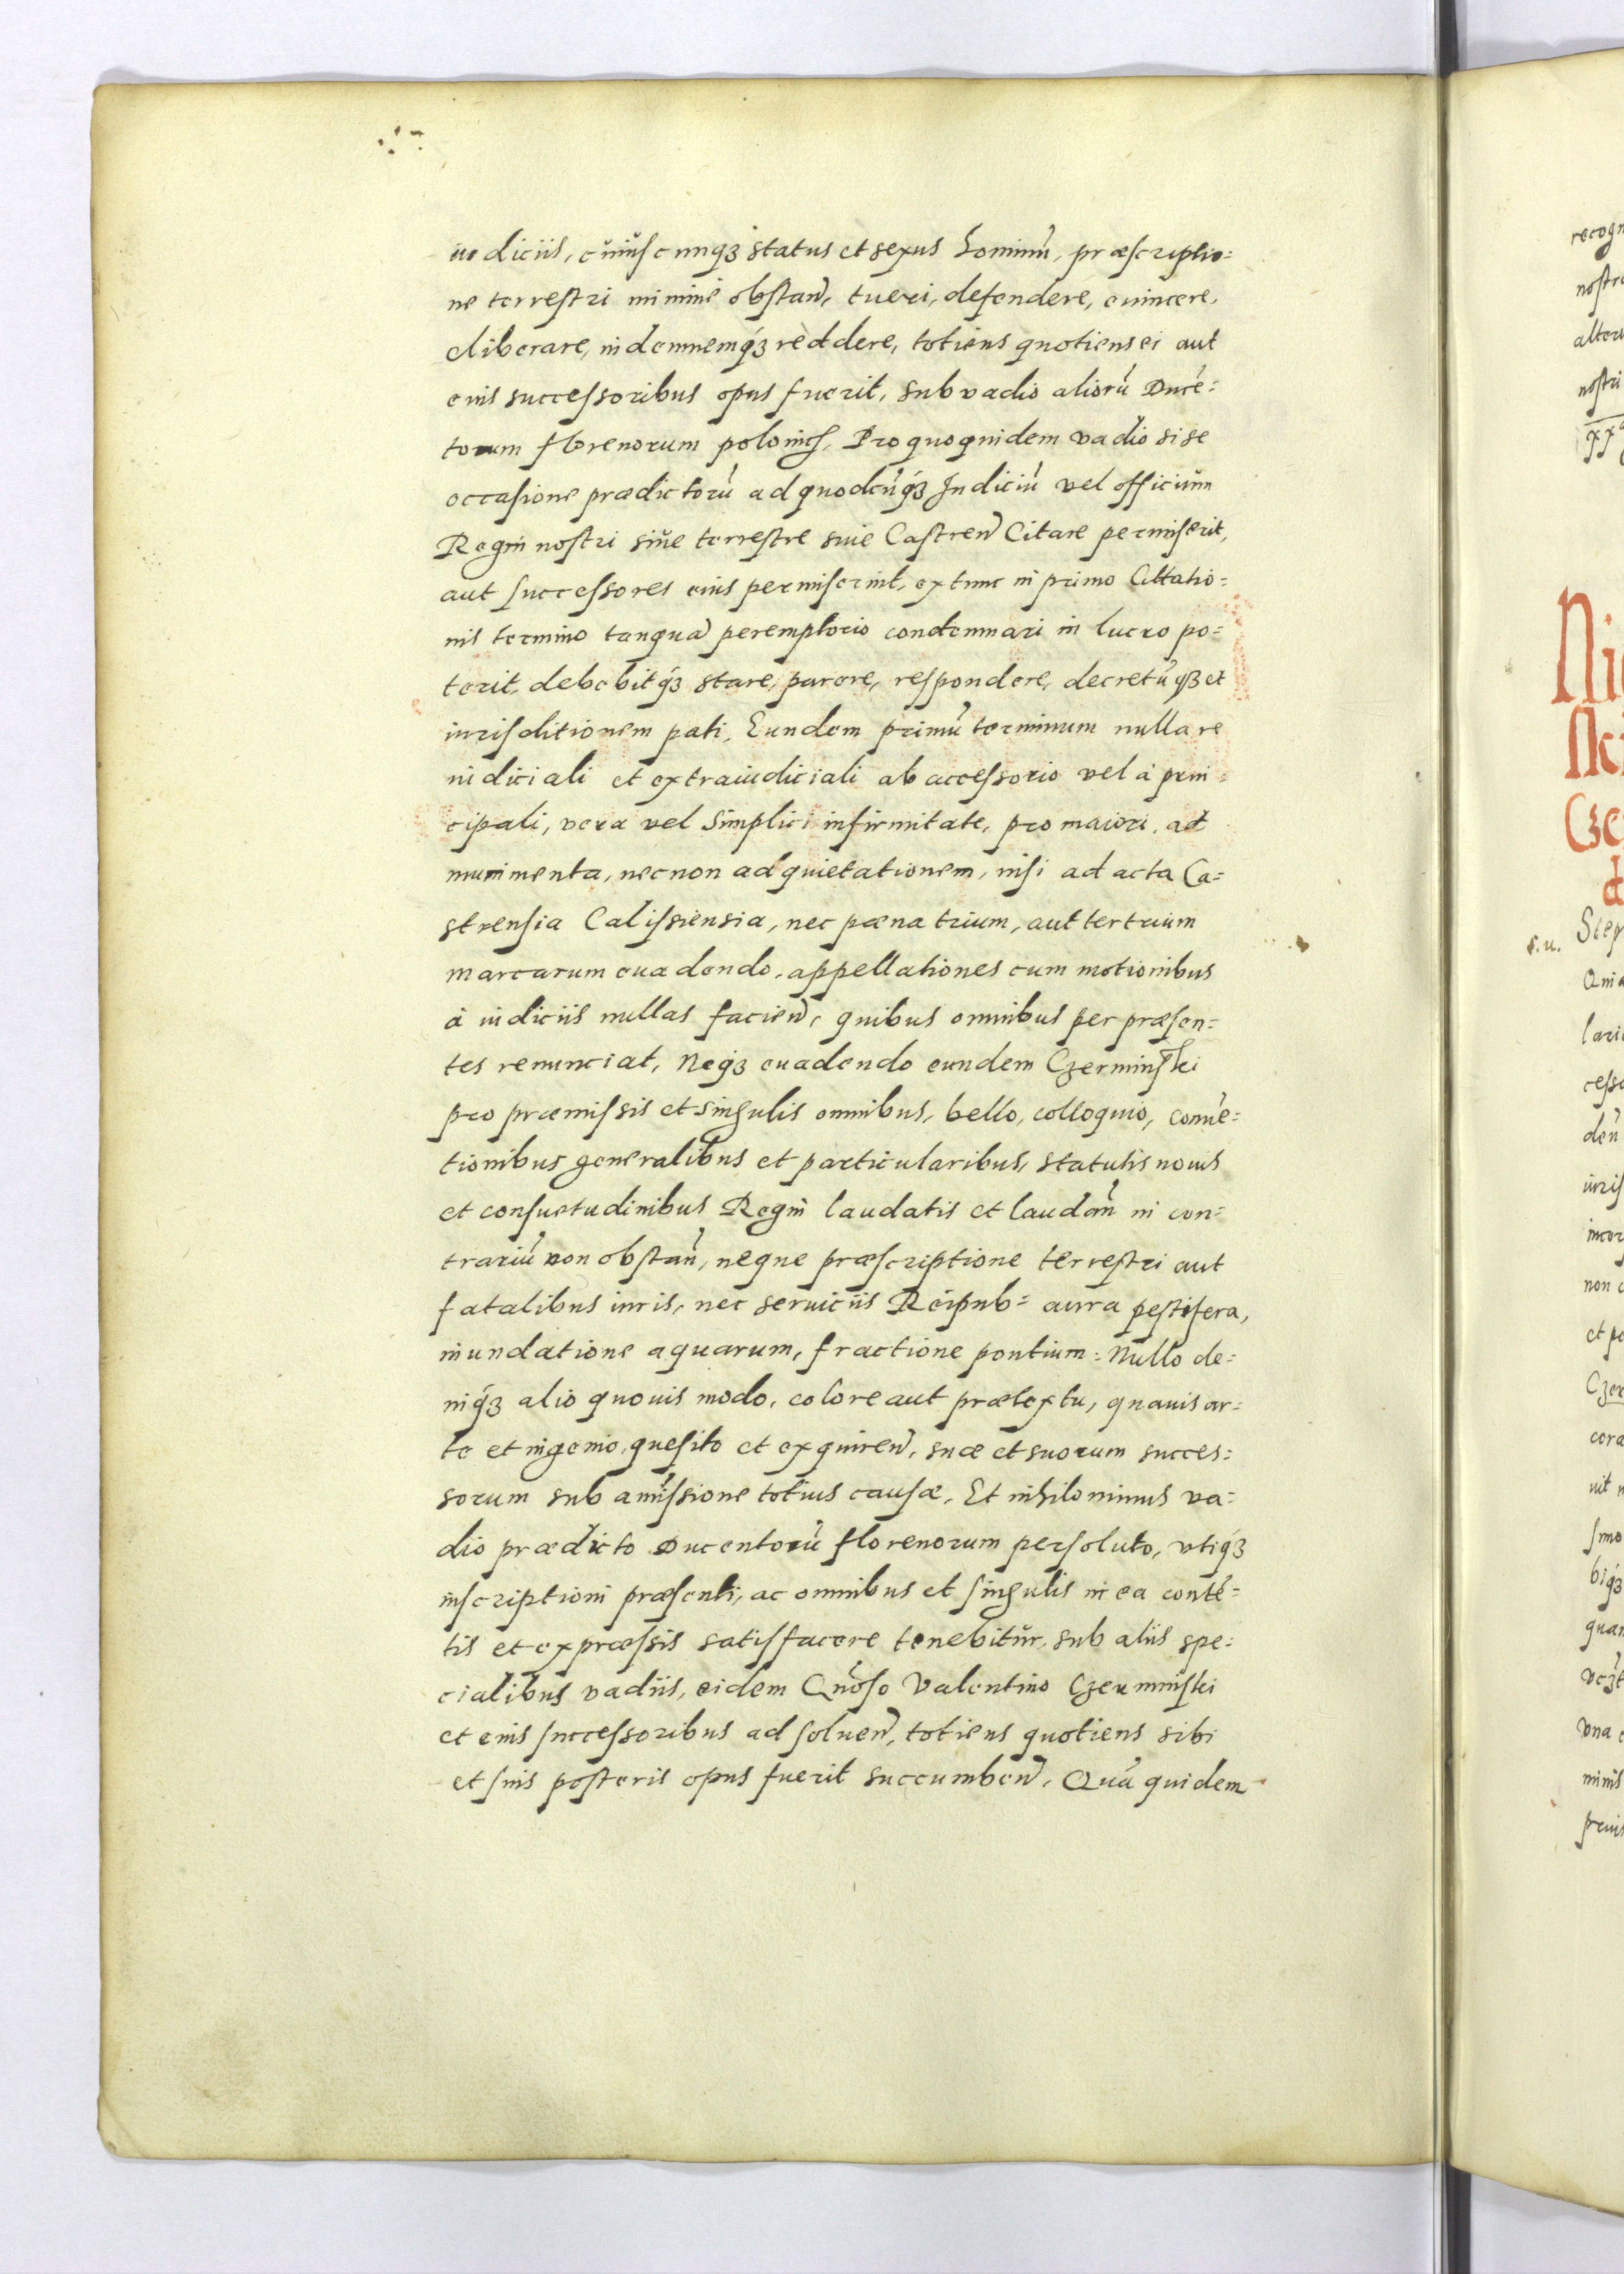 iudiciis, cuiuscunq3 status et sexus hominũ, præscriptio=
ne terrestri minime obstan̄, tueri, defendere, euincere,
eliberare, indemnemq́3 reddere, totiens quotiens ei aut
eius successoribus opus fuerit, sub vadio aliorũ Ducẽ=
torum florenorum polonic̄, Pro quo quidem vadio si se
occasione prædictorũ ad quodcũq́3 Iudiciũ vel officium
Regni nostri siue terrestre siue Castren̄ Citare permiserit,
aut successores eius permiserint, extunc in primo Citatio=
nis termino tanquã peremptorio condemnari in lucro po=
terit, debebitq́3 stare, parere, respondere, decretũq3 et
iurisditionem pati, Eundem primũ terminum nulla re
iudiciali et extraiudiciali ab accessorio vel à prin=
cipali, vera vel simplici infirmitate, pro maiori, ad
munimenta, necnon ad quietationem, nisi ad acta Ca=
strensia Calissiensia, nec pæna trium, aut tertrium
marcarum euadendo, appellationes cum motionibus
à iudiciis nullas facien̄, quibus omnibus per præsen=
tes renunciat, Neq3 euadendo eundem Czerminski
pro præmissis et singulis omnibus, bello, colloquio, conuẽ=
tionibus generalibus et particularibus, statutis nouis
et consuetudinibus Regni laudatis et laudan̄ in con=
trariũ non obstan̄, neque præscriptione terrestri aut
fatalibus iuris, nec seruiciis Reipub= aura pestifera,
inundatione aquarum, fractione pontium= Nullo de=
niq́3 alio quouis modo, colore aut prætextu, quauis ar=
te et ingenio, quesito et exquiren̄, suæ et suorum succes=
sorum sub amissione totius causæ, Et nihilominus va=
dio prædicto Ducentorũ florenorum persoluto, vtiq́3
inscriptioni præsenti, ac omnibus et singulis in ea contẽ=
tis et expræssis satisfacere tenebitur, sub aliis spe=
cialibus vadiis, eidem Gñoso Valentino Czerminski
et eius successoribus ad soluen̄, totiens quotiens sibi
et suis posteris opus fuerit succumben̄, Quã quidem